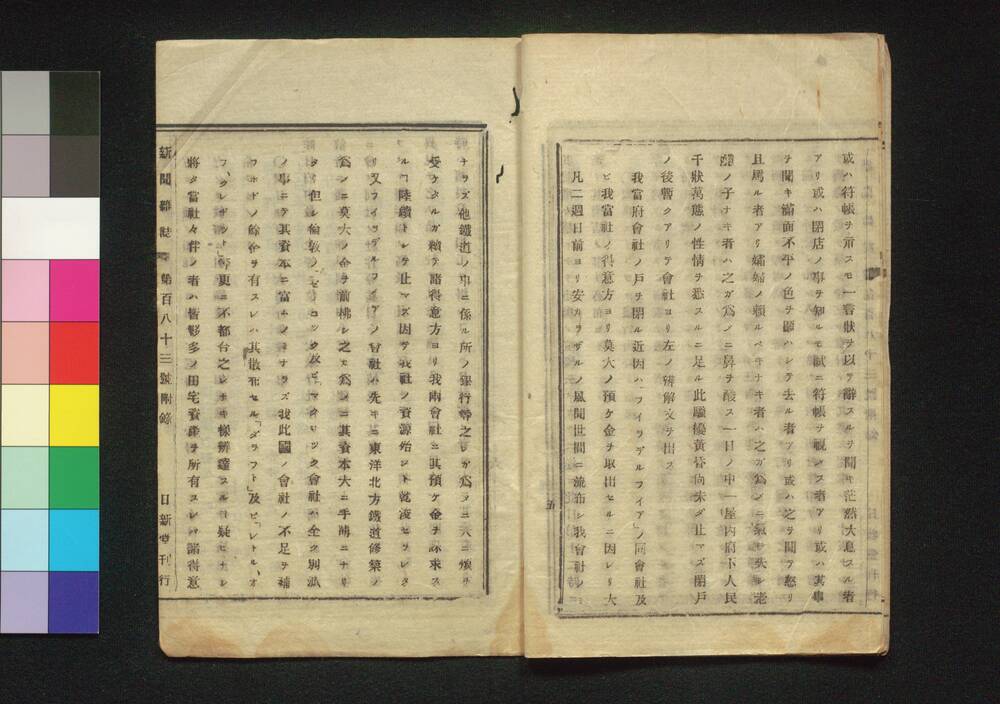 或ハ符帳ヲ示スモ一審狀ヲ以テ辭スルヲ聞キ茫然大息スル者
アリ或ハ閉店ノ事ヲ知ルモ試ニ符帳ヲ眎ス者アリ或ハ其事
ヲ聞キ滿面不平ノ色ヲ顯ハシテ去ル者アリ或ハ之ヲ聞テ怒リ
且罵ル者アリ孀婦ノ賴ルベキナキ者ハ之ガ爲メニ氣ヲ失ヒ老
ノ子ナキ者ハ之ガ爲メニ鼻ヲ酸ス一日ノ中一屋內府下人民
千狀萬態ノ性情ヲ悉スルニ足ル此騷擾黃昏尙未ダ止マズ閉戶
ノ後暫クアリテ會社ヨリ左ノ辨解文ヲ出ス
我當府會社ノ戶ヲ閉ル近因ハ「フイラデルフイア」ノ同會社及
ビ我當社ノ得意方ヨリ莫大ノ預ケ金ヲ取出セルニ因レリ大
凡二週日前ヨリ安カラザルノ風聞世間ニ流布シ我會社ノミ
五
ナラズ他鐵道ノ事ニ係ル所ノ銀行等之レガ爲メニ大ニ煩ヲ
受ケタルガ賴テ諸得意方ヨリ我兩會社ニ其預ケ金ヲ諑求ス
ルコ陸續トシテ止マズ因テ我社ノ資源始ンド乾涸セラレタ
リ又フイラデルフイア」ノ會社ハ先キニ東洋北方鐵道修築ノ
爲メニ莫大ノ金ヲ前拂シ之ガ爲メニ其資本大ニ手薄ニナリ
タリ但シ倫敦ノ「ゼーコック及ビ「マクロック會社ハ全ク別派
ノ事ニテ其資本ニ富ムノミナラズ我此國ノ會社ノ不足ヲ補
フホドノ餘金ヲ有スレハ其散布セル「ダラフト」及ビ「レトル、オ
フ、クレヂット」等更ニ不都合之レナキ樣辨達スルコ疑ヒナシ
將タ當社々件ノ者ハ皆夥多ノ田宅資產ヲ所有スレバ諸得意
新聞雜誌 第百八十三號附錄 日新堂刊行